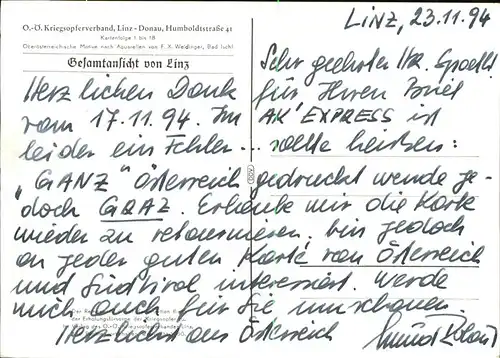 O.-Ö. Kriegsopferverband, Linz - Donau, Humboldtstraße 41
Kartenfolge 1 bis 18
Oberösterreichische Motive nach Aquarellen von F. X. Weidinger, Bad Ischl
Gesamtansicht von Linz
LINZ, 23.11.94
Sehr geehrter Hr.
Herzlichen Dank für Ihren Brief
vom 17.11.94. Im AK EXPRESS ist
leider ein Fehler... sollte heißen:
„GANZ" Österreich gedruckt wurde je-
doch GRAZ. Erlaube mir die Karte
wieder zu retournieren. bin jedoch
an jeder guten Karte von Österreich
und Südtirol interessiert. Werde
mich auch für Sie umschauen.
der Erholungsfürsorge der Kriegsopfer
Herzlichst aus Österreich